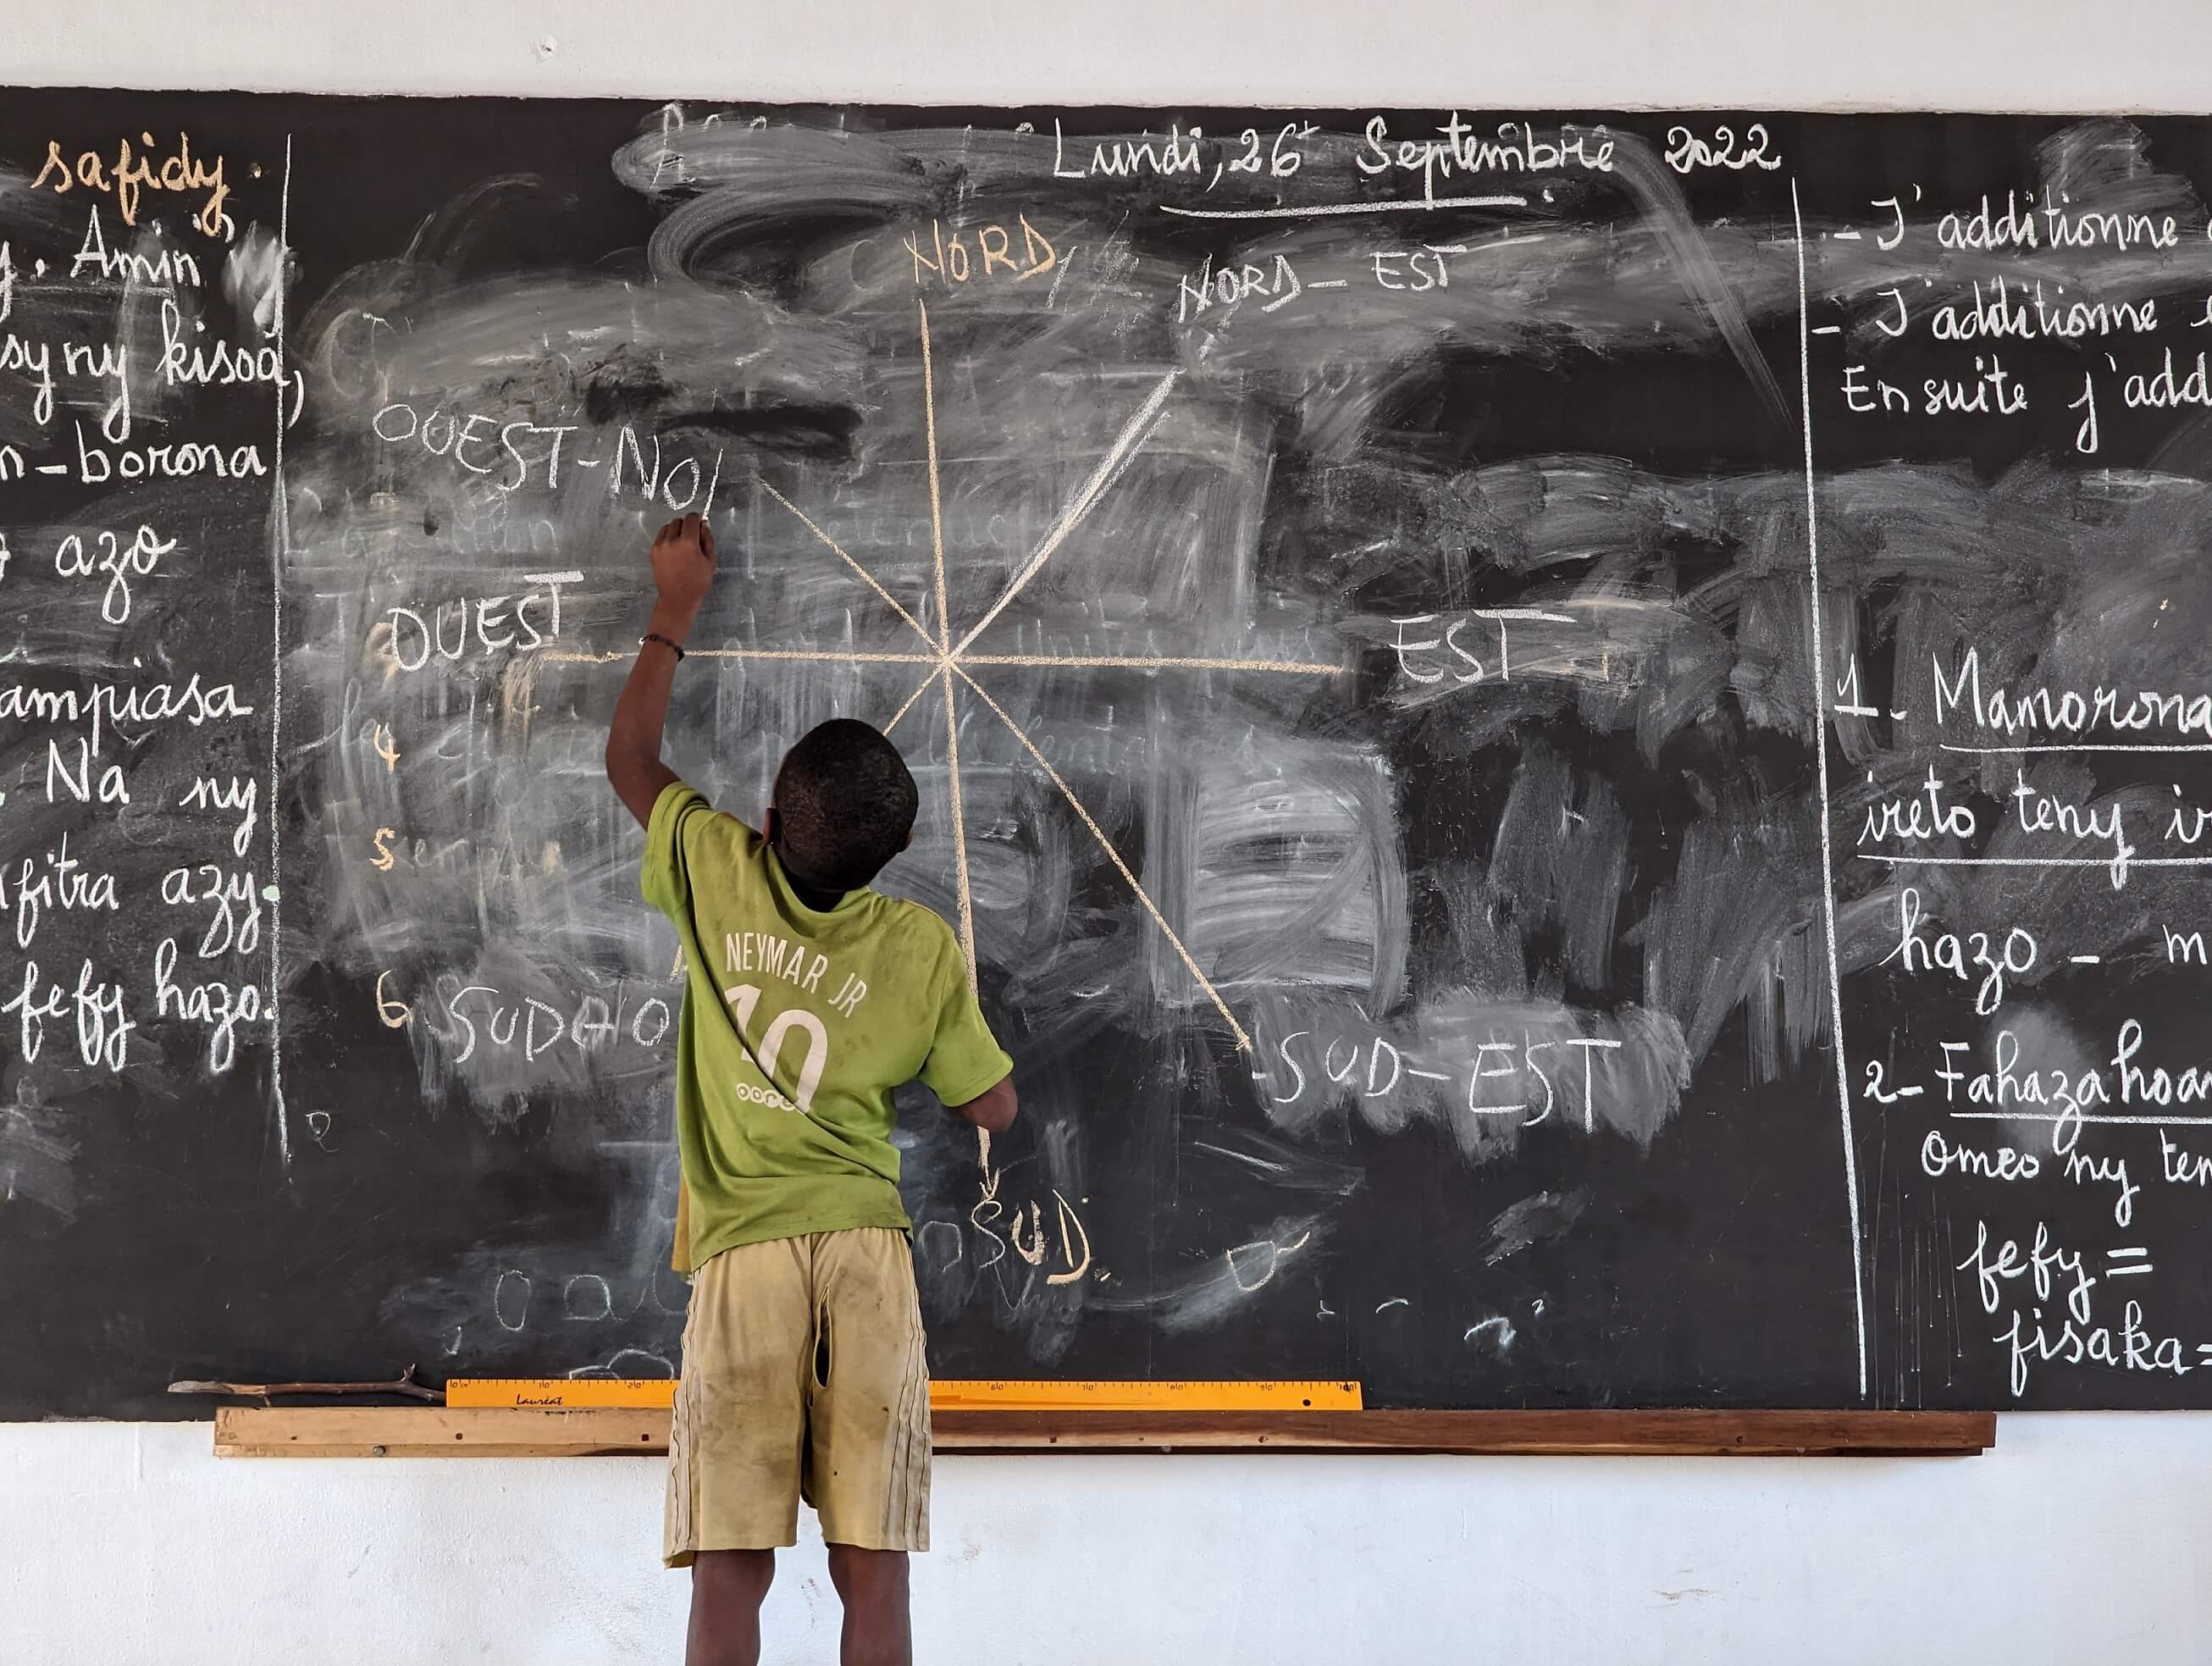 safidy.
Amin'ny
sy ny kisoa,
n-borona
azo
ampiasa
. Na ny
fitra azy.
fefy hazo.
Lundi, 26 Septembre 2022
NORD
NORD-EST
OUEST-NO
OUEST
EST
4
5
6
SUD-O
SUD-EST
SUD.
- J'additionne
- J'additionne
Ensuite j'add
1- Mamorona
ireto teny ir
hazo - m
2- Fahazahoa
omeo ny ten
fefy =
fisaka =
NEYMAR JR
10
ooredoo
Lauréat